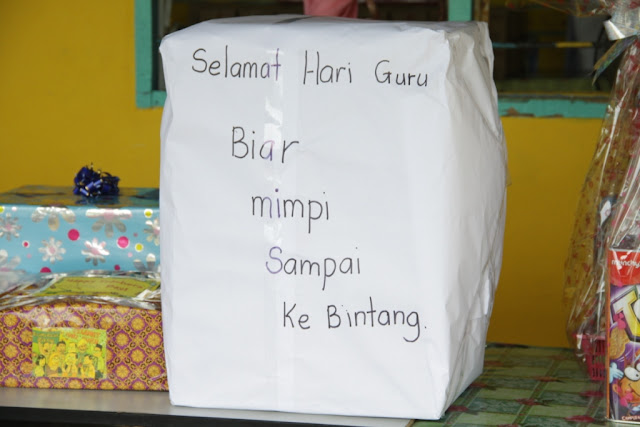 Selamat Hari Guru
Biar
mimpi
Sampai
Ke Bintang.